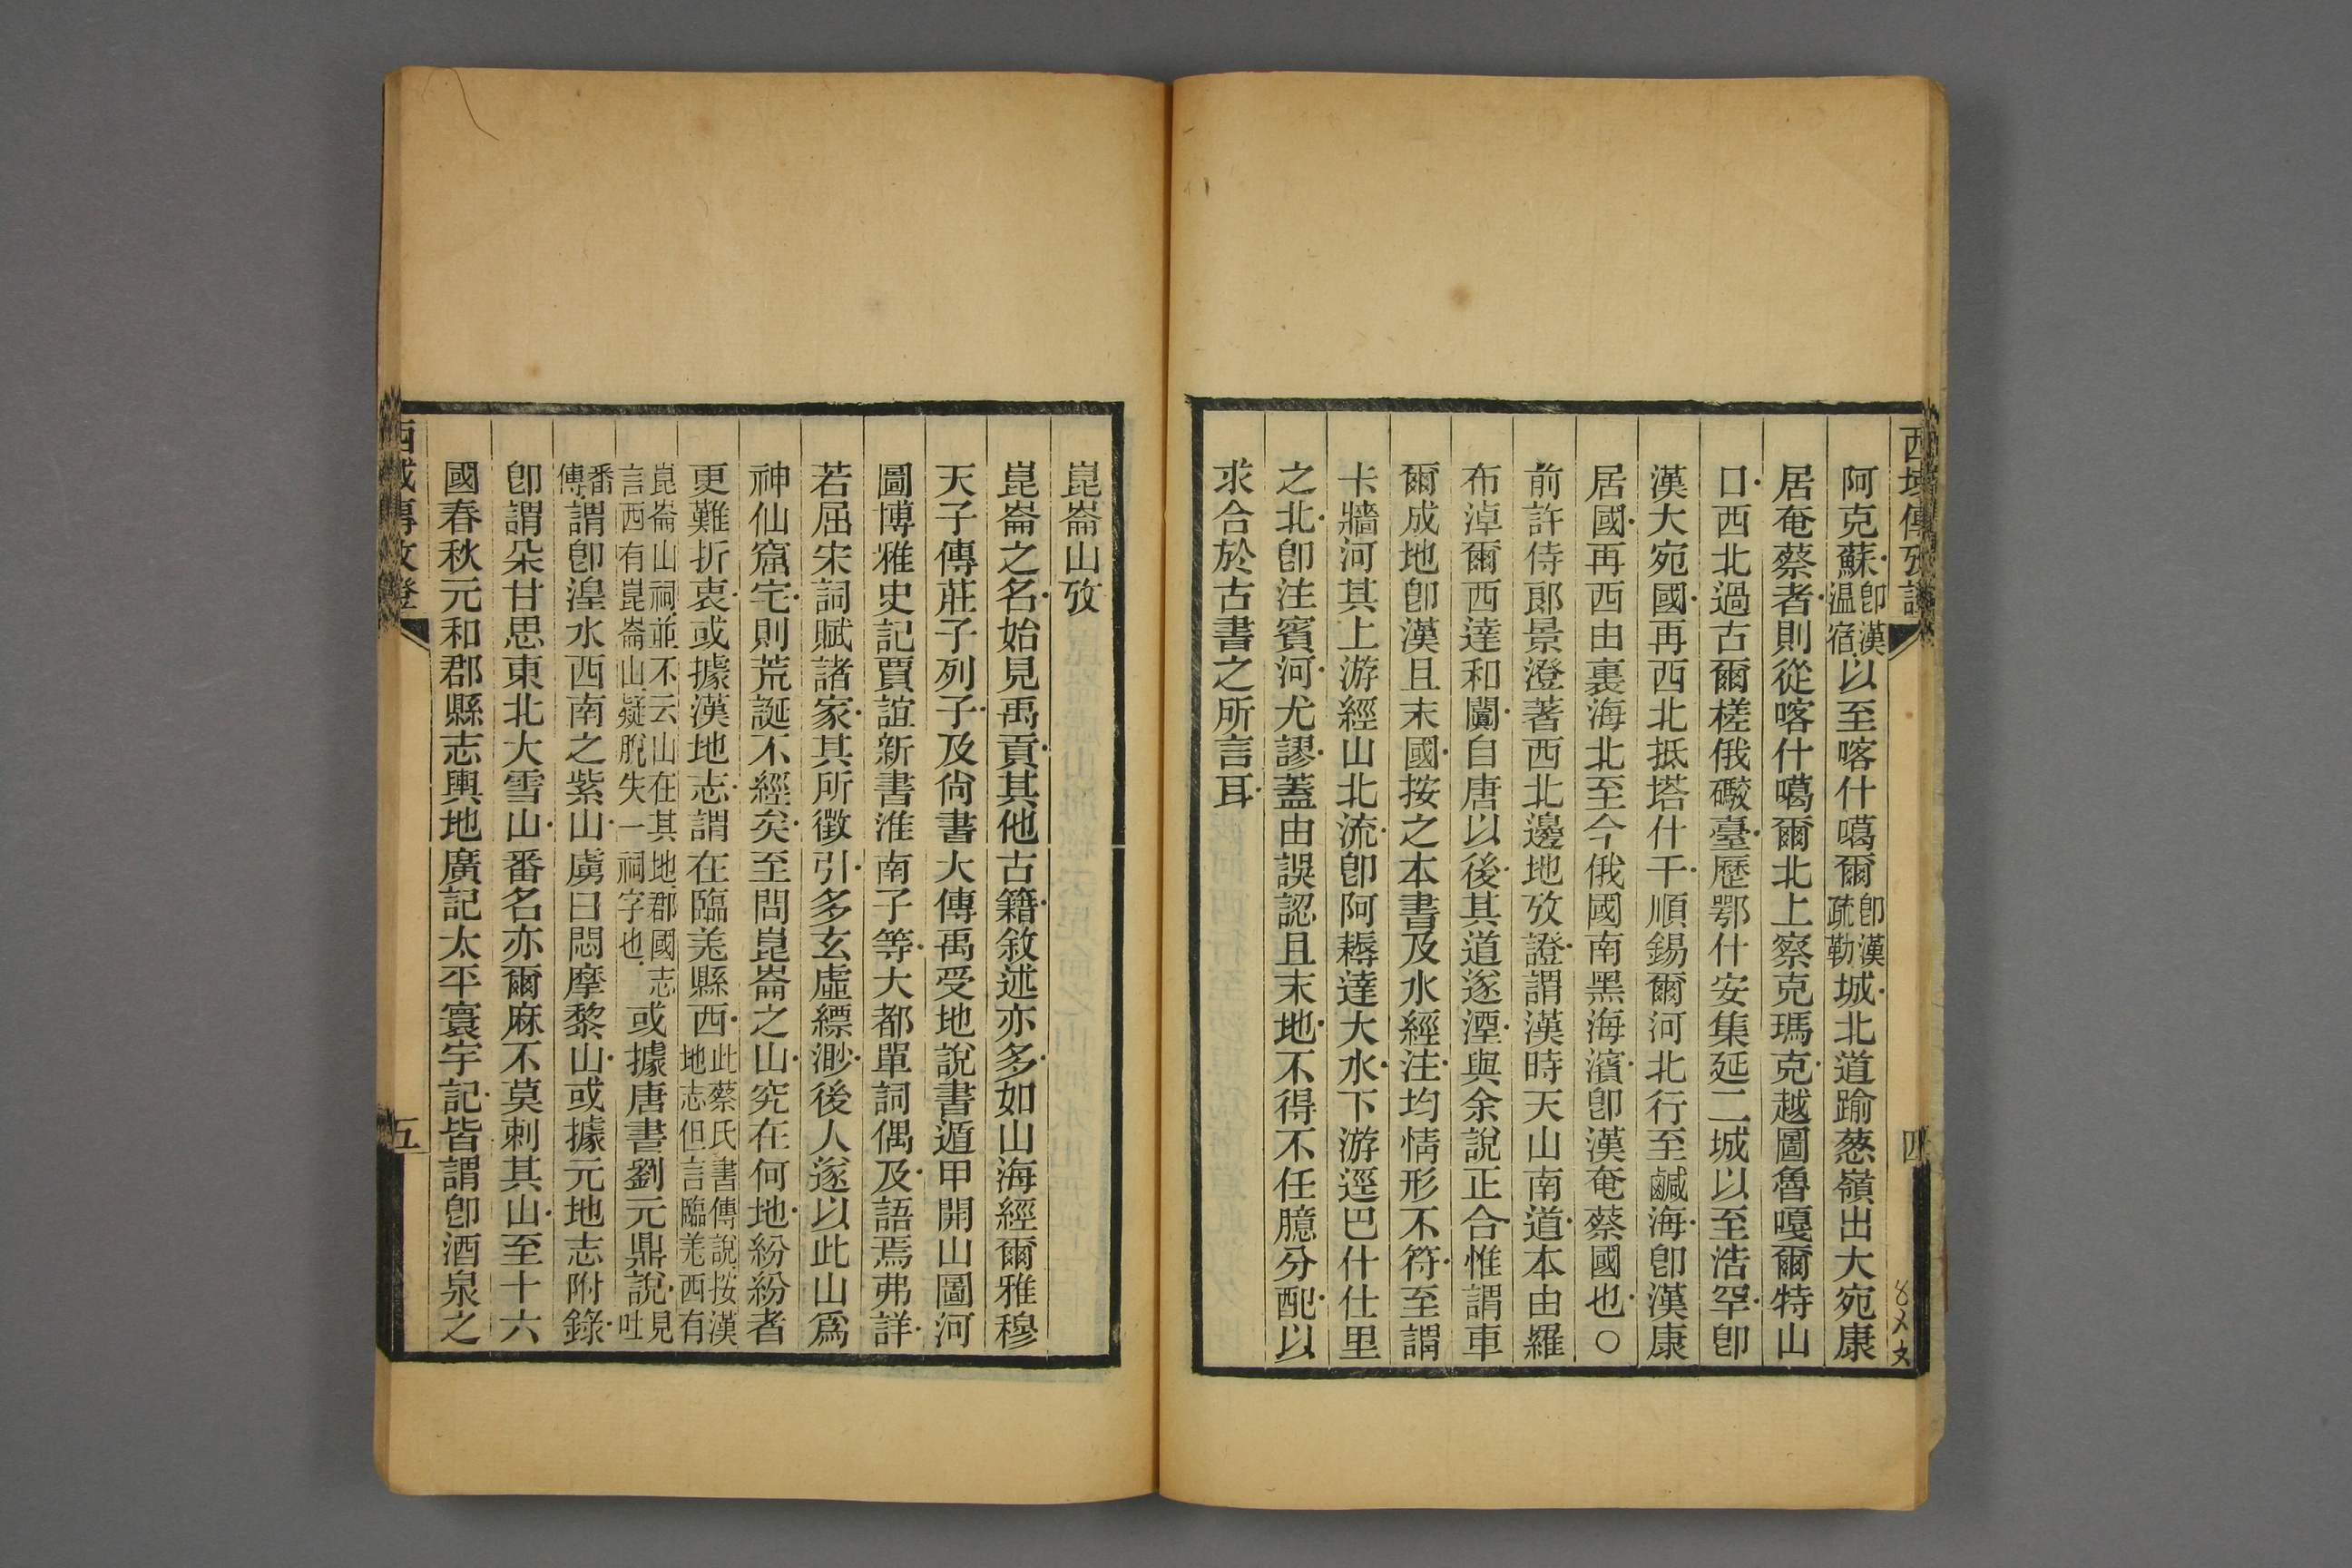 西域傳攷證
四
阿克蘇卽漢温宿以至喀什噶爾卽漢疏勒城北道踰葱嶺出大宛康
居奄蔡者則從喀什噶爾北上察克瑪克越圖魯嘎爾特山
口西北過古爾槎俄礮臺歷鄂什安集延二城以至浩罕卽
漢大宛國再西北抵塔什干順錫爾河北行至鹹海卽漢康
居國再西由裏海北至今俄國南黑海濱卽漢奄蔡國也〇
前許侍郞景澄著西北邊地攷證謂漢時天山南道本由羅
布淖爾西達和闐自唐以後其道遂湮與余說正合惟謂車
爾成地卽漢且末國按之本書及水經注均情形不符至謂
卡牆河其上游經山北流卽阿耨達大水下游逕巴什仕里
之北卽注賓河尤謬蓋由誤認且末地不得不任臆分配以
求合於古書之所言耳
崑崙山攷
崑崙之名始見禹貢其他古籍敘述亦多如山海經爾雅穆
天子傳莊子列子及尙書大傳禹受地說書遁甲開山圖河
圖博雅史記賈誼新書淮南子等大都單詞偶及語焉弗詳
若屈宋詞賦諸家其所徵引多玄虛縹渺後人遂以此山爲
神仙窟宅則荒誕不經矣至問崑崙之山究在何地紛紛者
更難折衷或據漢地志謂在臨羌縣西此蔡氏書傳說按漢地志但言臨羌西有
崑崙山祠並不云山在其地郡國志言西有崑崙山疑脫失一祠字也或據唐書劉元鼎說見吐
番傳謂卽湟水西南之紫山虜曰悶摩黎山或據元地志附錄
卽謂朵甘思東北大雪山番名亦爾麻不莫剌其山至十六
國春秋元和郡縣志輿地廣記太平寰宇記皆謂卽酒泉之
西域傳攷證
五